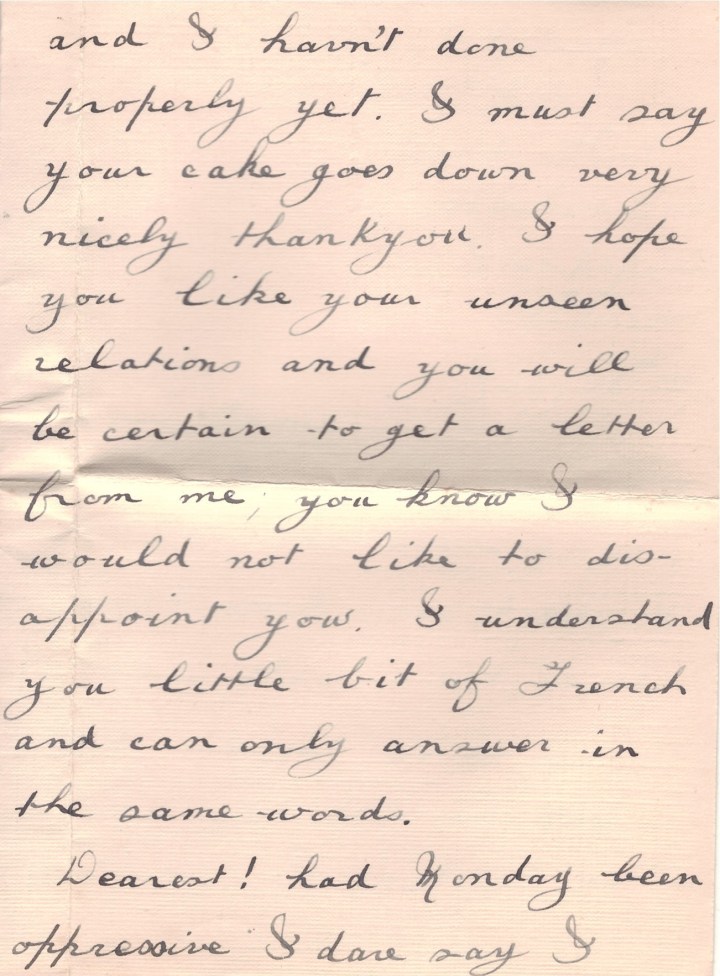 and I havn't done
properly yet. I must say
your cake goes down very
nicely thankyou. I hope
you like your unseen
relations and you will
be certain to get a letter
from me, you know I
would not like to dis-
appoint you. I understand
you little bit of French
and can only answer in
the same words.
Dearest! had Monday been
oppressive I dare say I